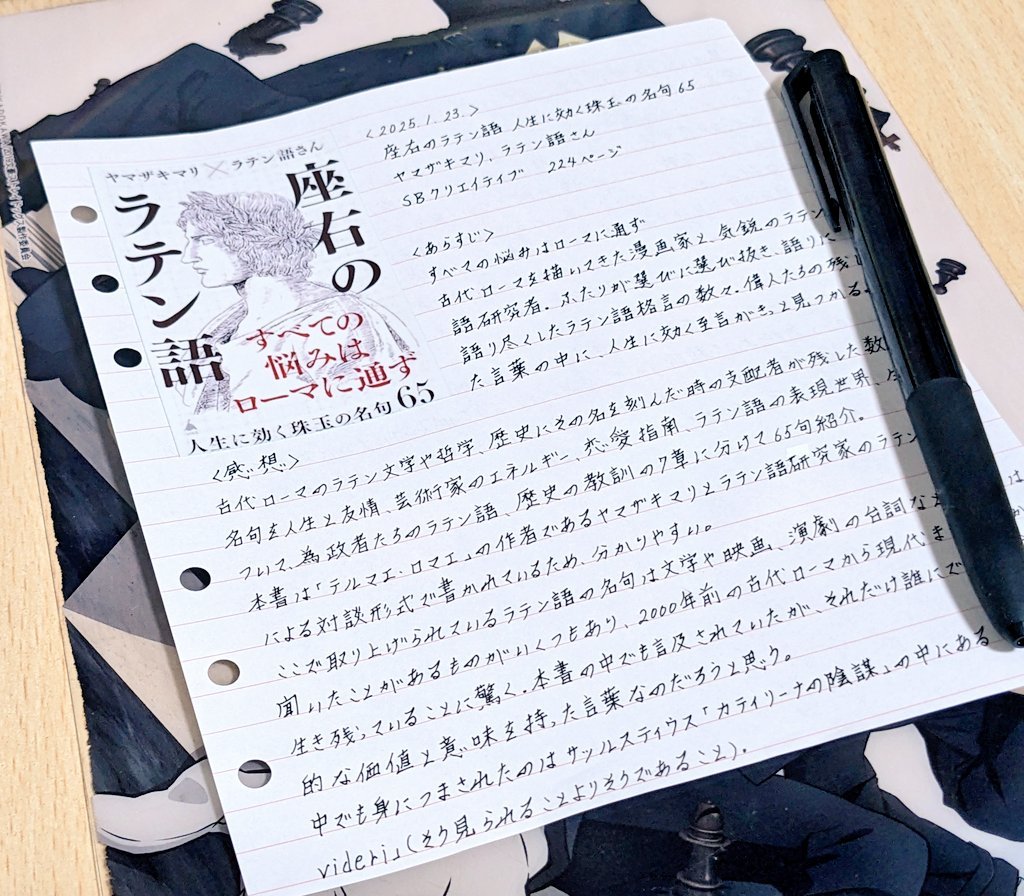 <2025.1.23.>
座右のラテン語 人生に効く珠玉の名句65
ヤマザキマリ、ラテン語さん
SBクリエイティブ 224ページ
ヤマザキマリ×ラテン語さん
座右の
ラテン語
すべての
悩みは
ローマに通ず
人生に効く珠玉の名句65
<あらすじ>
すべての悩みはローマに通ず
古代ローマを描いてきた漫画家と、気鋭のラテン
語研究者。ふたりが選びに選び抜き、語りに
語り尽くしたラテン語格言の数々。偉人たちの残し
た言葉の中に、人生に効く至言がきっと見つかる。
<感想>
古代ローマのラテン文字や哲学、歴史にその名を刻んだ時の支配者が残した数
名句を人生と友情、芸術家のエネルギー、恋愛指南、ラテン語の表現世界、
ついて、為政者たちのラテン語、歴史の教訓の7章に分けて65句紹介。
本書は「テルマエ・ロマエ」の作者であるヤマザキマリとラテン語研究家のラテン
による対談形式で書かれているため、分かりやすい。
ここで取り上げられているラテン語の名句は文字や映画、演劇の台詞など
聞いたことがあるものがいくつもあり、2000年前の古代ローマから現代ま
生き残っていることに驚く。本書の中でも言及されていたが、それだけ誰にで
的な価値と意味を持った言葉なのだろうと思う。
中でも身につまされたのはサッルスティウス「カティリーナの陰謀」の中にある
videri」(そう見られることよりそうであること)。